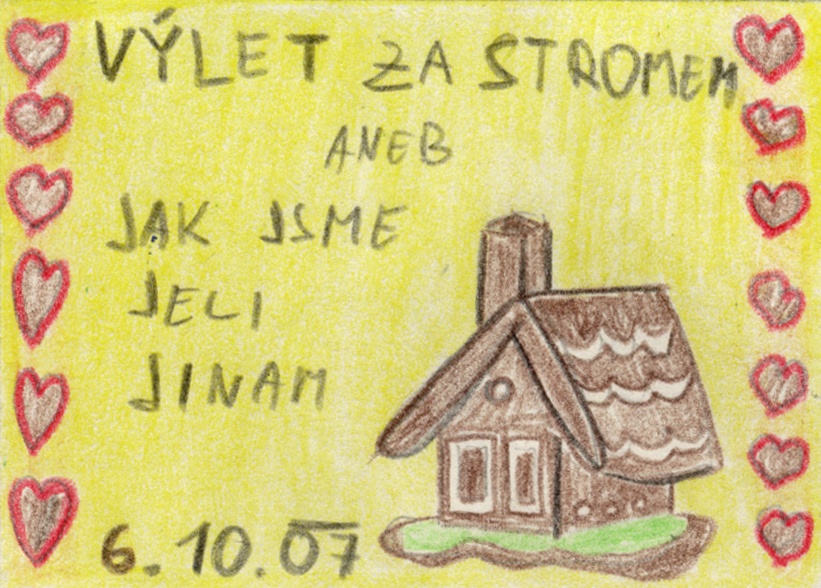 VÝLET ZA STROMEM
ANEB
JAK JSME
JELI
JINAM
6.10.07